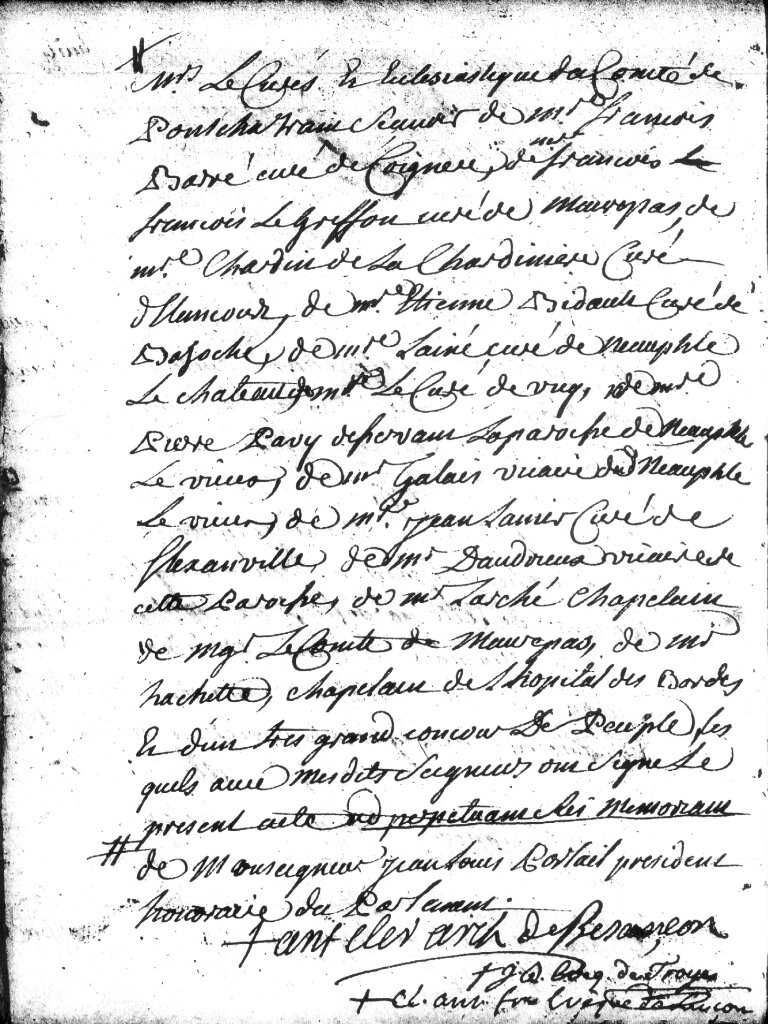 Mrs Le Curés Et Eclesiastique du Comté de
Pontchartrain Scavoir de mre francois
Barré curé de Coigneres, de mre francois Le
francois Le Greffou curé de Maurepas, de
mre Chardin de La Chardiniere Curé
d'Elancour, de mre Etienne Bidault Curé de
Basoche, de mre Lainé curé de Neauphle
Le chateau, de mre Le Curé de vicq, de mre
Pierre Pavy deservant La paroisse de Neauphle
Le vieux, de mr Galais vicaire dud Neauphle
Le vieux, de mre jean Lanier Curé de
de mr Daudreux vicaire de
cette Paroisse, de mr Larché Chapelain
de mgr Le Comte de Maurepas, de mr
hachette, chapelain de L'hopital des Bordes
Et d'un tres grand concour De Peuple les
quels avec mesdits Seigneurs ont Signé Le
present acte ad perpetuam Rei memoriam
# de Monseigneur jean Louis Portail president
honoraire du Parlement.
+ ant cler arch de Besançon
+ J. B. Eveq. de Troyes
+ Cl. ant. fr. Evêque de Luçon